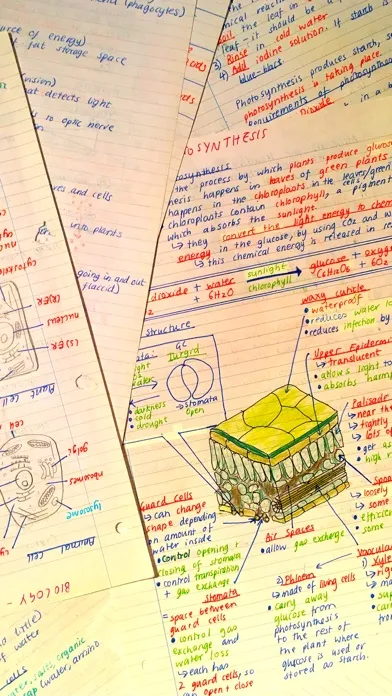 (phagocytes)
source of energy)
fat storage space
at detects light
to optic nerve
and cells
into plants
going in and out
flaccid)
leaf
3) Rinse in cold water
4) Add iodine solution. If starch
blue-black.
Photosynthesis produces starch, s
photosynthesis is taking place.
OSYNTHESIS
the process by which plants produce glucose
happens in leaves of green plants
happens in the chloroplasts in the
chloroplasts contain chlorophyll, a pigment
which absorbs the sunlight.
↳ they convert the light energy to chem
energy in the glucose, by using CO2 and
↳ this chemical energy is released in re
dioxide + water sunlight glucose + oxyg
+ 6H2O chlorophyll C6H12O6 + 6O2
structure
GC
Turgid
water
darkness
cold
drought
→ Stomata
open
waxy cuticle
• waterproof
• reduces water lo
• reduces infection by
Upper Epidermi
→ translucent
• allows light to
• absorbs harm
Palisade
→ near th
→ tightly
→ lots of
• get as
high r
Spon
→ loosely
→ some
efficien
some
Guard cells
→ can change
shape depending
on amount of
water inside
• Control opening /
closing of stomata
• control transpiration
+ gas exchange
Air Spaces
• allow gas exchange
Stomata
= space between
guard cells
• control gas
exchange and
water loss
↳ each has
2 guard cells, so
can open + close
Vascular
1) Xyle
2) Phloem
→ made of living cells
• carry away
glucose from
photosynthesis
to the rest of
the plant where
glucose is used or
stored as starch.
nucleus
Plant Cell
cell
golgi
ribosome
lysosome
Animal Cell
BIOLOGY
of water
organic
(water, amino